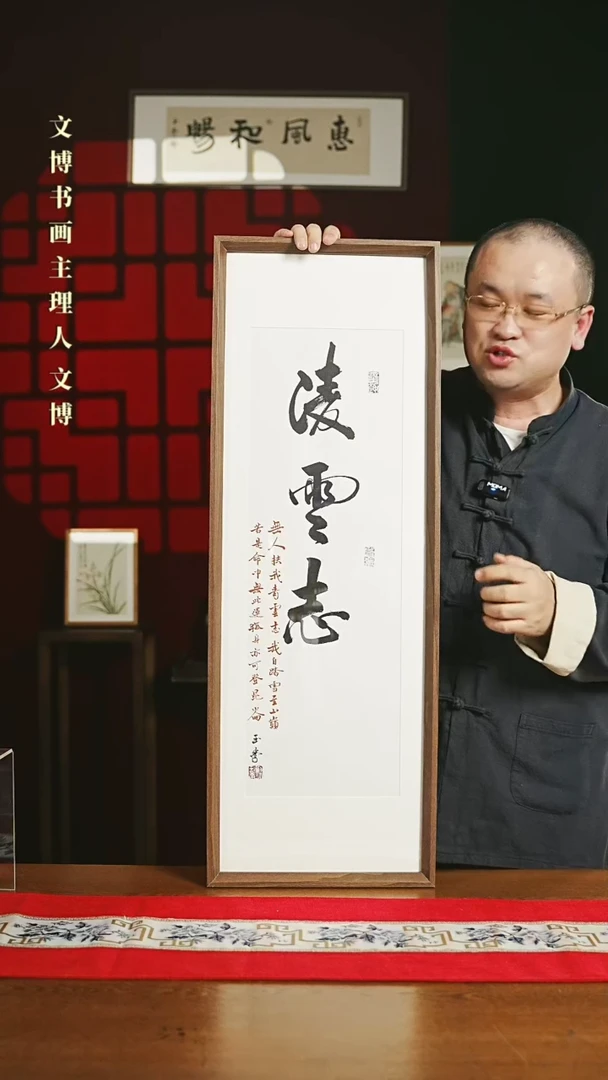 文博书画主理人文博
惠風和暢
凌雲志
無人扶我青雲志我自踏雪至山巔
若是命中無此運孤身亦可登昆崙